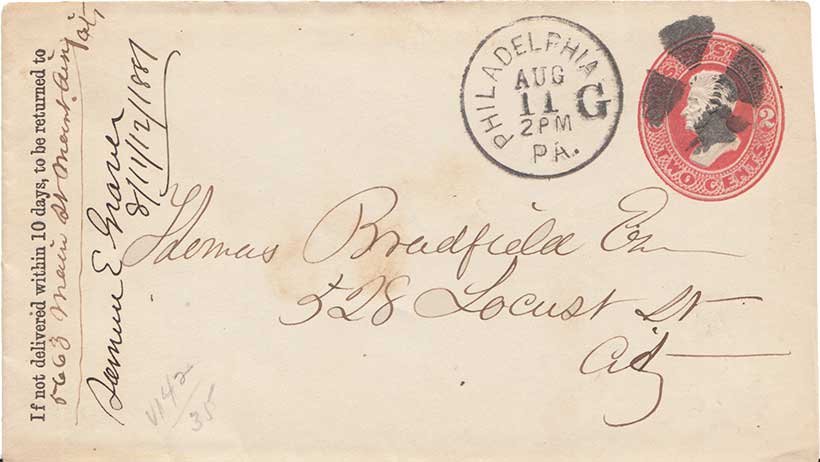 If not delivered within 10 days, to be returned to
5663 Main St Mount Airy
Samuel E Graver
8/11/12/1887
PHILADELPHIA
AUG
11 G
2PM
PA.
U.S.
2
TWO CENTS
Thomas Bradfield Esq
528 Locust St
City
V142
35